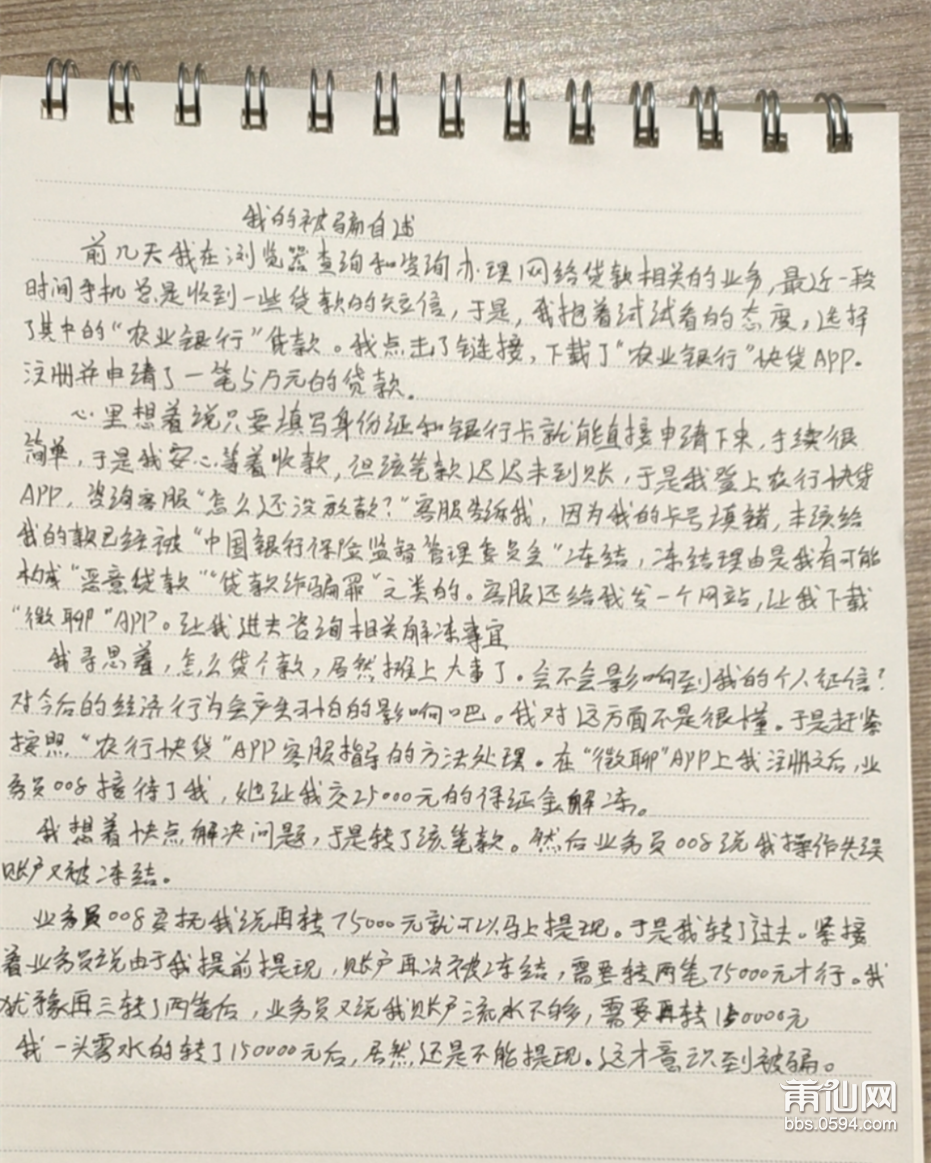 我的被骗自述
前几天我在浏览器查询和咨询办理网络贷款相关的业务,最近一段
时间手机总是收到一些贷款的短信,于是,我抱着试试看的态度,选择
了其中的“农业银行”贷款。我点击了链接,下载了“农业银行”快贷APP.
注册并申请了一笔5万元的贷款.
心里想着说只要填写身份证和银行卡就能直接申请下来,手续很
简单,于是我安心等着收款,但该笔款迟迟未到账,于是我登上农行快贷
APP,咨询客服“怎么还没放款?”客服告诉我,因为我的卡号填错,本该给
我的款已经被“中国银行保险监督管理委员会”冻结,冻结理由是我有可能
构成“恶意贷款”“贷款诈骗罪”之类的。客服还给我发一个网站,让我下载
“微聊”APP。让我进去咨询相关解冻事宜
我寻思着,怎么贷个款,居然摊上大事了。会不会影响到我的个人征信?
对今后的经济行为会产生可怕的影响吧。我对这方面不是很懂。于是赶紧
按照“农行快贷”APP客服指导的方法处理。在“微聊”APP上我注册之后,业
务员008接待了我,她让我交25000元的保证金解冻。
我想着快点解决问题,于是转了该笔款。然后业务员008说我操作失误
账户又被冻结。
业务员008 我说再转75000元就可以马上提现。于是我转了过去。紧接
着业务员说由于我提前提现,账户再次被冻结,需要转两笔75000元才行。我
犹豫再三转了两笔后,业务员又说我账户流水不够,需要再转150000元
我一头雾水的转了150000元后,居然还是不能提现。这才意识到被骗。
莆仙网
bbs.0594.com